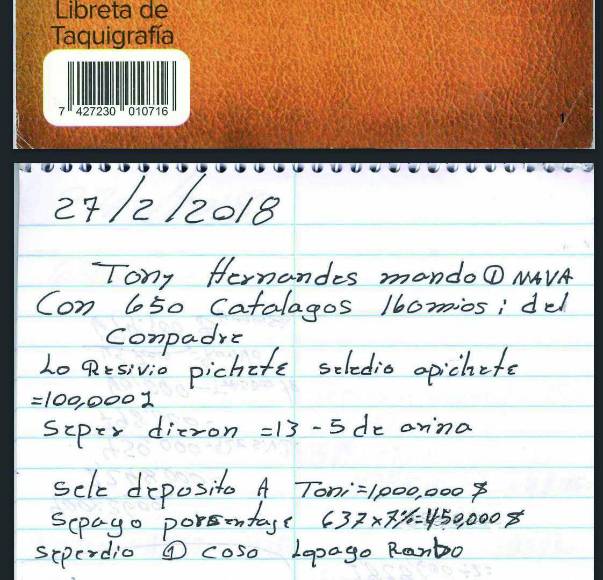 Libreta de
Taquigrafía
7 427230 010716
1
27/2/2018
Tony Hernandes mando ① NAVA
Con 650 Catalagos 160mios; del
Conpadre
Lo Resivio pichete seledio apichete
=100,000 $
Seper dieron =13 - 5 de arina
Sele deposito A Toni=1,000,000 $
Sepago porsentage 637x7%=450,000 $
Seperdio ① coso Lopago Ranbo